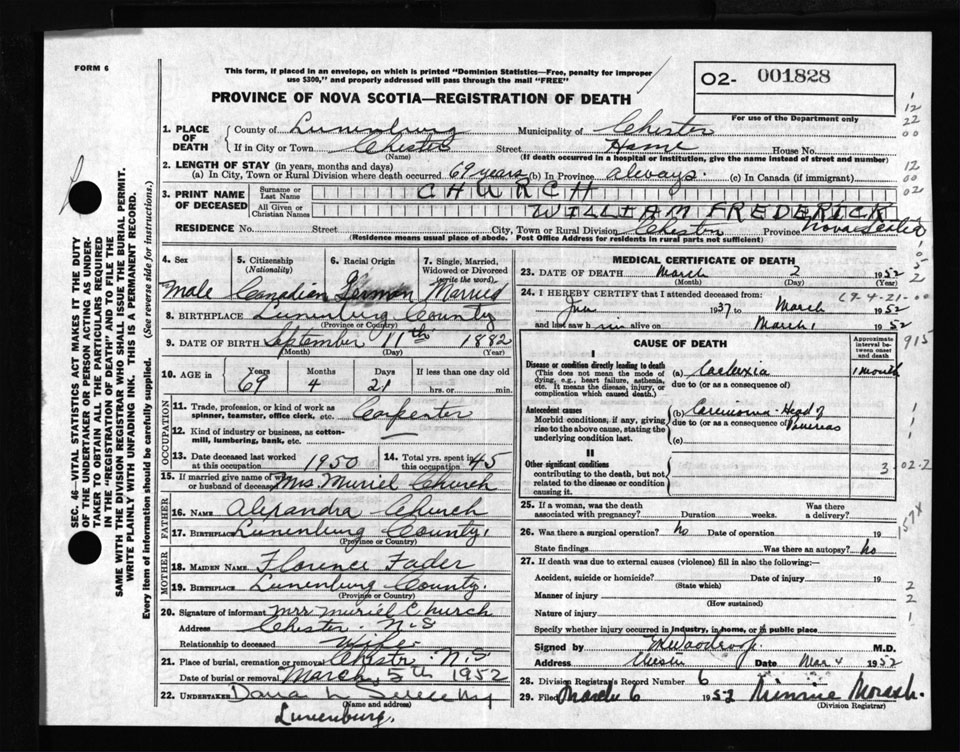 FORM 6
This form, if placed in an envelope, on which is printed "Dominion Statistics—Free, penalty for improper
use $300," and properly addressed will pass through the mail "FREE"
O2- 001828
For use of the Department only
PROVINCE OF NOVA SCOTIA—REGISTRATION OF DEATH
1. PLACE OF DEATH
County of Lunenburg Municipality of Chester
If in City or Town Chester Street Home House No.
(Name) (If death occurred in a hospital or institution, give the name instead of street and number)
2. LENGTH OF STAY (in years, months and days)
(a) In City, Town or Rural Division where death occurred 69 years (b) In Province always. (c) In Canada (if immigrant)
3. PRINT NAME OF DECEASED
Surname or Last Name CHURCH
All Given or Christian Names WILLIAM FREDERICK
RESIDENCE No. Street City, Town or Rural Division Chester Province Nova Scotia
(Residence means usual place of abode. Post Office Address for residents in rural parts not sufficient)
4. Sex
Male
5. Citizenship
(Nationality)
Canadian
6. Racial Origin
German
7. Single, Married,
Widowed or Divorced
(write the word)
Married
8. BIRTHPLACE Lunenburg County
(Province or Country)
9. DATE OF BIRTH September 11th 1882
(Month) (Day) (Year)
10. AGE in Years Months Days If less than one day
69 4 21 hrs. or min.
OCCUPATION
11. Trade, profession, or kind of work as
spinner, teamster, office clerk, etc. Carpenter
12. Kind of industry or business, as cotton-
mill, lumbering, bank, etc. —
13. Date deceased last worked
at this occupation 1950
14. Total yrs. spent in
this occupation 45
15. If married give name of wife
or husband of deceased Mrs. Muriel Church
FATHER
16. NAME Alexandra Church
17. BIRTHPLACE Lunenburg County.
(Province or Country)
MOTHER
18. MAIDEN NAME Florence Fader
19. BIRTHPLACE Lunenburg County.
(Province or Country)
20. Signature of informant Mrs Muriel Church
Address Chester N.S
Relationship to deceased Wife
21. Place of burial, cremation or removal Chester N.S
Date of burial or removal March 5th 1952
22. UNDERTAKER Dana L
(Name and address)
Lunenburg.
MEDICAL CERTIFICATE OF DEATH
23. DATE OF DEATH March 2 1952
(Month) (Day) (Year)
24. I HEREBY CERTIFY that I attended deceased from:
1937 to March 1952
and last saw him alive on March 1 1952
CAUSE OF DEATH
Approximate interval between onset and death
I
Disease or condition directly leading to death
(This does not mean the mode of
dying, e.g., heart failure, asthenia,
etc. It means the disease, injury, or
complication which caused death.)
(a) Cachexia 1 month
due to (or as a consequence of)
Antecedent causes
Morbid conditions, if any, giving
rise to the above cause, stating the
underlying condition last.
(b) Carcinoma - Head of
due to (or as a consequence of) Pancreas
(c)
II
Other significant conditions
contributing to the death, but not
related to the disease or condition
causing it.
25. If a woman, was the death
associated with pregnancy? Duration weeks. Was there
a delivery?
26. Was there a surgical operation? No Date of operation 19
State findings Was there an autopsy? No
27. If death was due to external causes (violence) fill in also the following:—
Accident, suicide or homicide? Date of injury 19
(State which)
Manner of injury
(How sustained)
Nature of injury
Specify whether injury occurred in industry, in home, or in public place
Signed by Woodroof M.D.
Address Chester Date Mar 4 1952
28. Division Registrar's Record Number 6
29. Filed March 6 1952 Minnie Morash
(Division Registrar)
SEC. 46—VITAL STATISTICS ACT MAKES IT THE DUTY
OF THE UNDERTAKER OR PERSON ACTING AS UNDER-
TAKER TO OBTAIN ALL THE PARTICULARS REQUIRED
IN THE "REGISTRATION OF DEATH" AND TO FILE THE
SAME WITH THE DIVISION REGISTRAR WHO SHALL ISSUE THE BURIAL PERMIT.
WRITE PLAINLY WITH UNFADING INK. THIS IS A PERMANENT RECORD.
Every item of information should be carefully supplied. (See reverse side for instructions.)